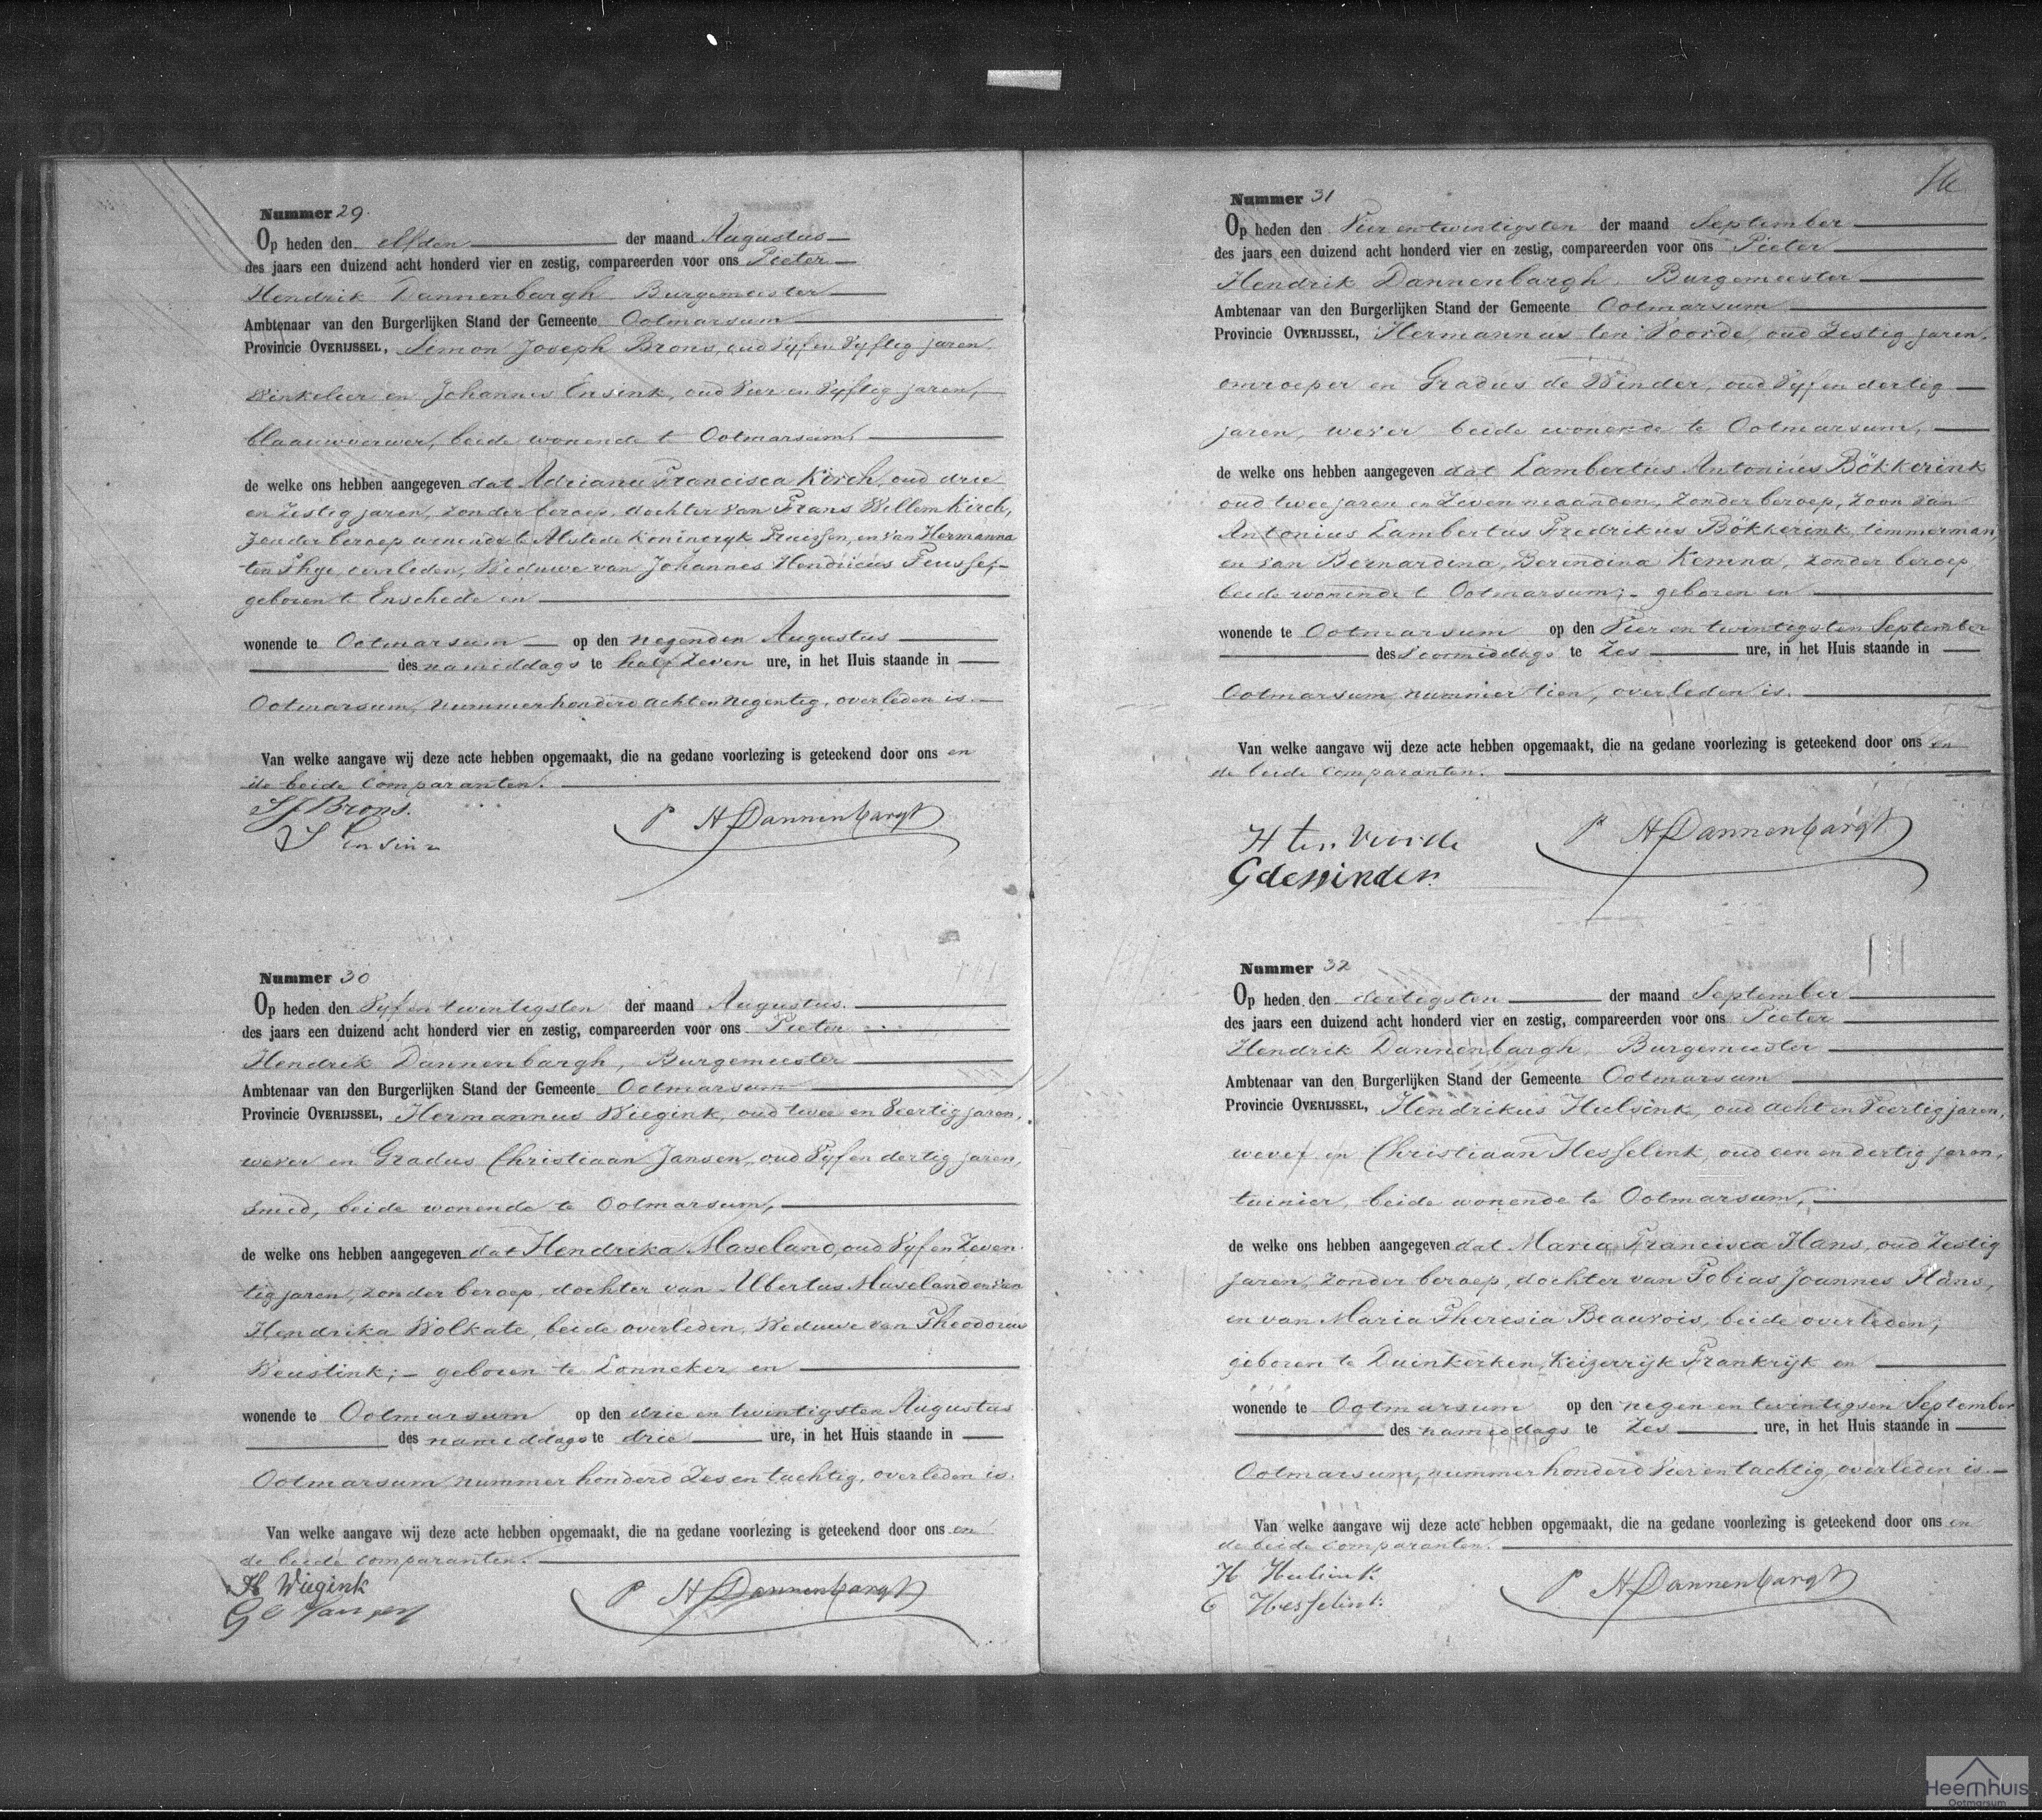 Nummer 29.
Op heden den elfden der maand Augustus
des jaars een duizend acht honderd vier en zestig, compareerden voor ons Pieter
Hendrik Dannenbargh Burgemeester
Ambtenaar van den Burgerlijken Stand der Gemeente Ootmarsum
Provincie OVERIJSSEL, Simon Joseph Brons, oud Vyf en Vyftig jaren,
Winkelier en Johannes Ensink, oud Vier en Vyftig jaren,
blaauwverwer, beide wonende te Ootmarsum,
de welke ons hebben aangegeven dat Adriana Francisca Kirch, oud drie
en Zestig jaren, zonder beroep, dochter van Frans Willem Kirch,
zonder beroep wonende te Alstede Koninkryk Pruissen, en van Hermanna
ten overleden, Weduwe van Johannes Hendricus
geboren te Enschede en
wonende te Ootmarsum op den negenden Augustus
des namiddags te half Zeven ure, in het Huis staande in
Ootmarsum, nummer honderd acht en negentig, overleden is.
Van welke aangave wij deze acte hebben opgemaakt, die na gedane voorlezing is geteekend door ons en
de beide comparanten.
SJ Brons.
J Ensink
P H Dannenbargh
Nummer 30
Op heden den Vyf en twintigsten der maand Augustus.
des jaars een duizend acht honderd vier en zestig, compareerden voor ons Pieter
Hendrik Dannenbargh, Burgemeester
Ambtenaar van den Burgerlijken Stand der Gemeente Ootmarsum
Provincie OVERIJSSEL, Hermannus Wiegink, oud twee en Veertig jaren,
wever en Gradus Christiaan Jansen, oud Vyf en dertig jaren,
smid, beide wonende te Ootmarsum,
de welke ons hebben aangegeven dat Hendrika Maseland, oud Vyf en Zeven
tig jaren, zonder beroep, dochter van Albertus Maseland en van
Hendrika Wolkate, beide overleden, Weduwe van Theodorus
Weustink; - geboren te Lonneker en
wonende te Ootmarsum op den drie en twintigsten Augustus
des namiddags te drie ure, in het Huis staande in
Ootmarsum nummer honderd Zes en tachtig, overleden is.
Van welke aangave wij deze acte hebben opgemaakt, die na gedane voorlezing is geteekend door ons en
de beide comparanten.
H Wiegink
G C Jansen
P H Dannenbargh
Nummer 31
Op heden den Vier en twintigsten der maand September
des jaars een duizend acht honderd vier en zestig, compareerden voor ons Pieter
Hendrik Dannenbargh, Burgemeester
Ambtenaar van den Burgerlijken Stand der Gemeente Ootmarsum
Provincie OVERIJSSEL, Hermannus ten Voorde, oud Zestig jaren,
omroeper en Gradus de Winder, oud Vyf en dertig
jaren, wever beide wonende te Ootmarsum,
de welke ons hebben aangegeven dat Lambertus Antonius Bökkerink
oud twee jaren en Zeven maanden, zonder beroep, zoon van
Antonius Lambertus Fredrikus Bökkerink, timmerman,
en van Bernardina, Berendina Kemna, zonder beroep
beide wonende te Ootmarsum; - geboren en
wonende te Ootmarsum op den Vier en twintigsten September
des Voormiddags te Zes ure, in het Huis staande in
Ootmarsum, nummer tien, overleden is.
Van welke aangave wij deze acte hebben opgemaakt, die na gedane voorlezing is geteekend door ons en
de beide comparanten.
H ten Voorde
G de winder
P H Dannenbargh
Nummer 32
Op heden den dertigsten der maand September
des jaars een duizend acht honderd vier en zestig, compareerden voor ons Pieter
Hendrik Dannenbargh, Burgemeester
Ambtenaar van den Burgerlijken Stand der Gemeente Ootmarsum
Provincie OVERIJSSEL, Hendrikus Hulsink, oud acht en Veertig jaren,
wever en Christiaan Hesselink, oud een en dertig jaren,
tuinier, beide wonende te Ootmarsum,
de welke ons hebben aangegeven dat Maria Francisca Hans, oud Zestig
jaren, zonder beroep, dochter van Tobias Joannes Hans,
en van Maria Theresia Beauvois, beide overleden;
geboren te Duinkerken, Keizerrijk Frankrijk en
wonende te Ootmarsum op den negen en twintigsen September
des namiddags te Zes ure, in het Huis staande in
Ootmarsum, nummer honderd Vier en tachtig, overleden is.
Van welke aangave wij deze acte hebben opgemaakt, die na gedane voorlezing is geteekend door ons en
de beide comparanten.
H Hulsink
C Hesselink
P H Dannenbargh
Heemhuis
Ootmarsum